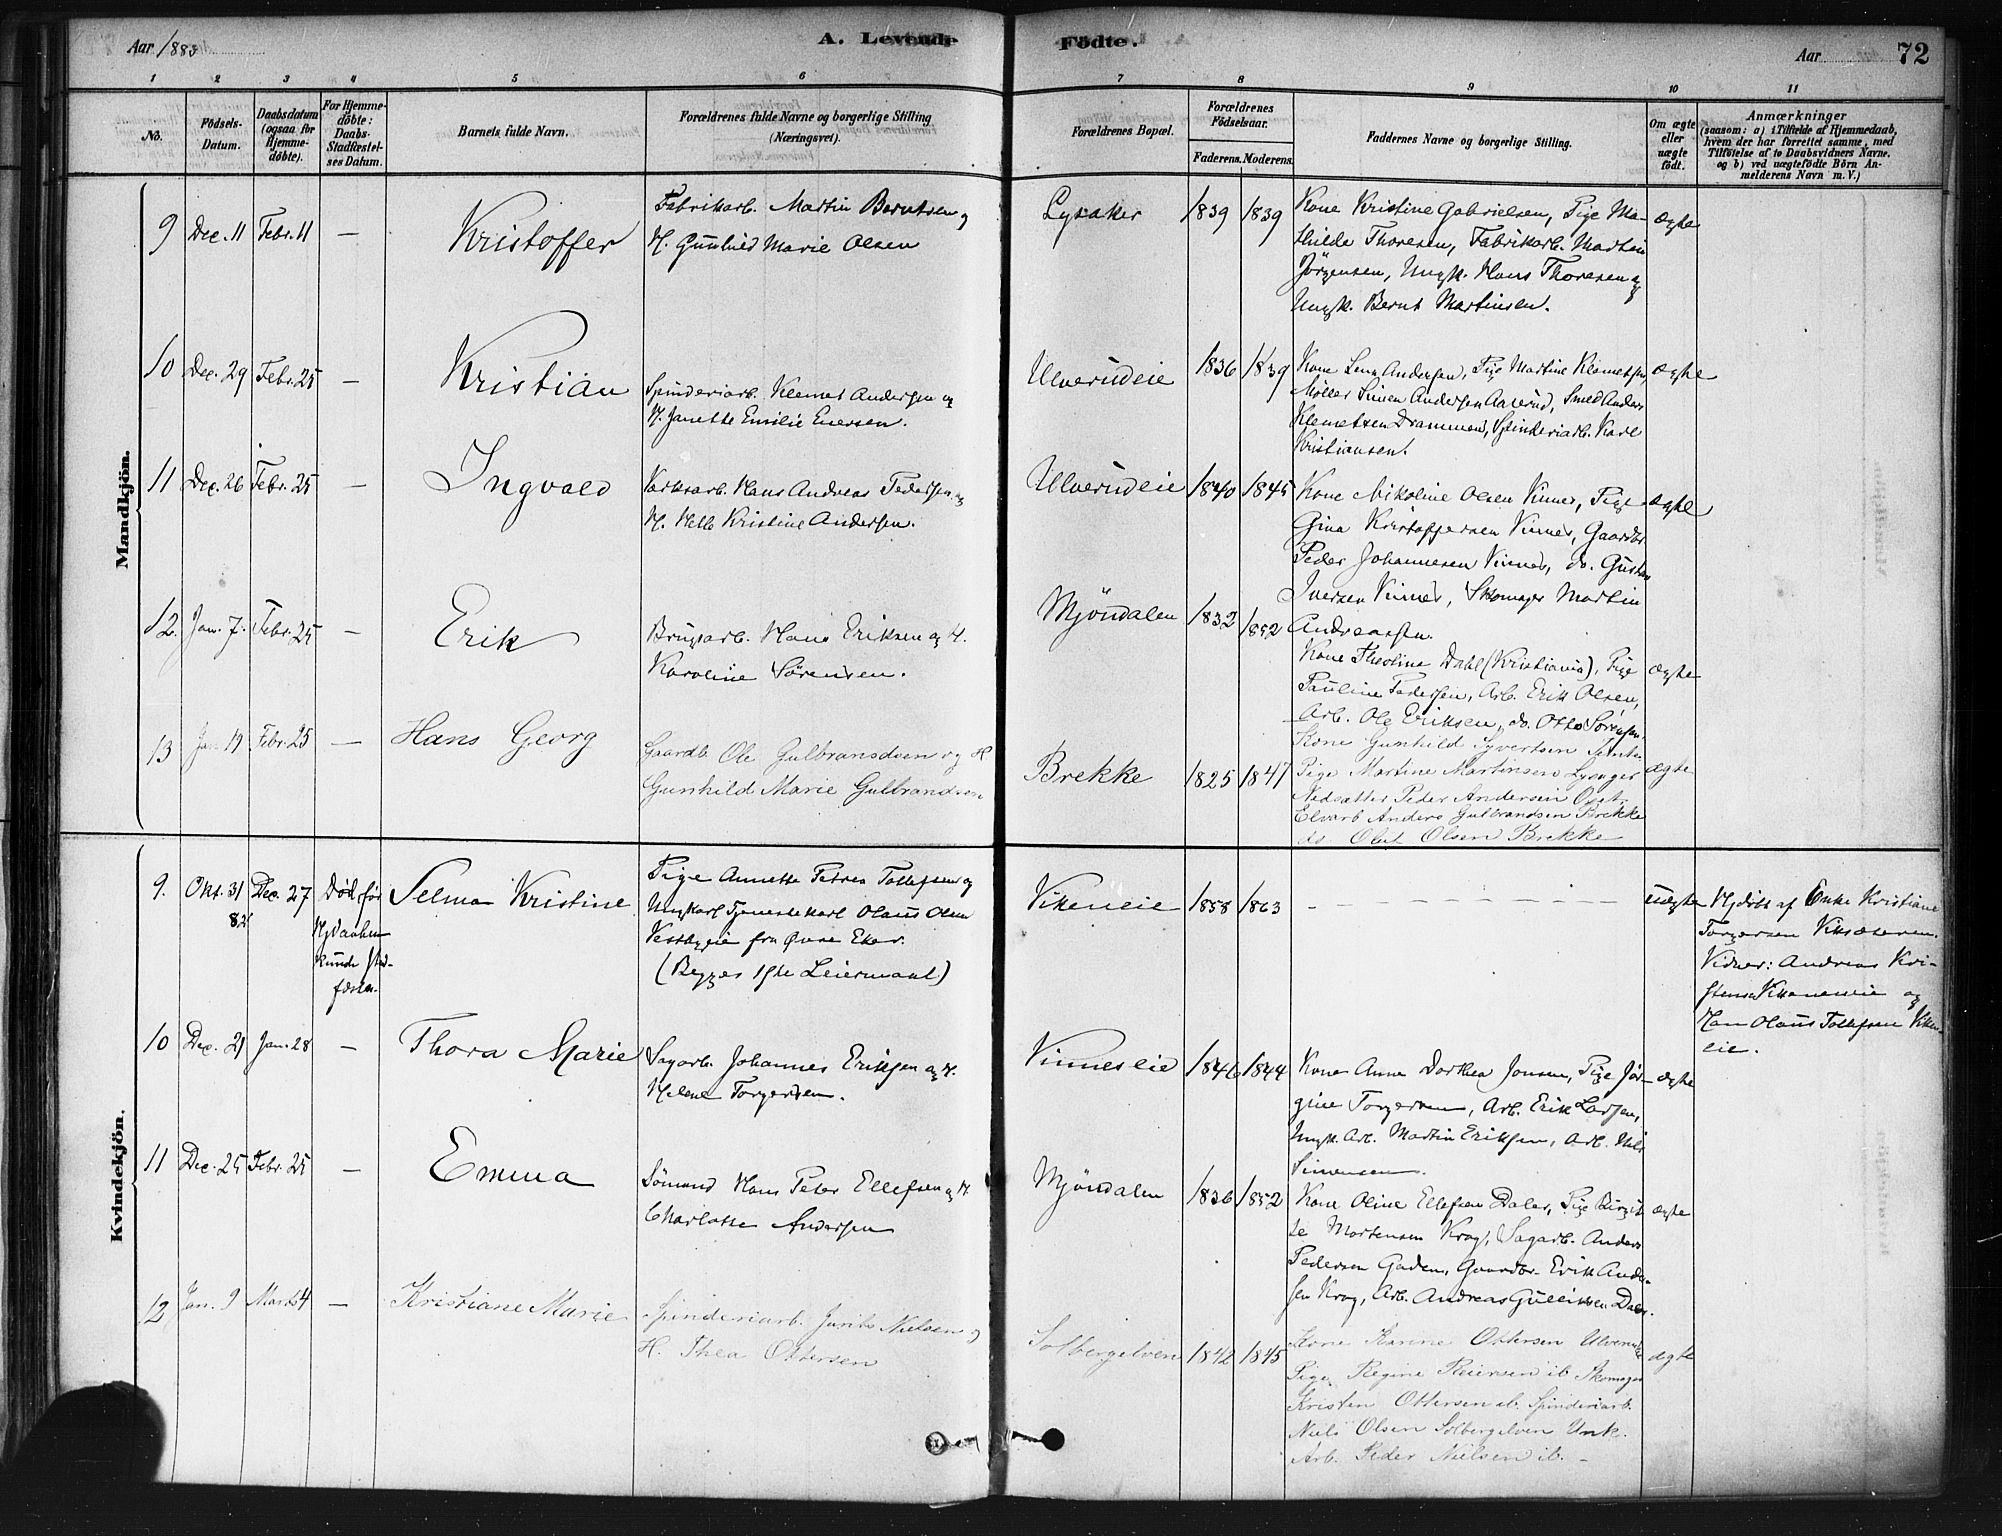 Aar 1883
A. Levende Födte.
Aar 72
1 2 3 4 5 6 7 8 9 10 11
No.
Födsels-Datum.
Daabsdatum (ogsaa for Hjemme-döbte).
For Hjemme-döbte: Daabs-Stadfæstel-ses Datum.
Barnets fulde Navn.
Forældrenes fulde Navne og borgerlige Stilling (Næringsvei).
Forældrenes Bopæl.
Forældrenes Födselsaar.
Faderens. Moderens.
Faddernes Navne og borgerlige Stilling.
Om ægte eller uægte födt.
Anmærkninger
(saasom: a) i Tilfælde af Hjemmedaab,
hvem der har forrettet samme, med
Tilföielse af to Daabsvidners Navne,
og b) ved uægtefödte Börn An-
melderens Navn m. V.)
Mandkjön.
9 Dec. 11 Febr. 11 — Kristoffer
Fabrikarb. Martin Berntsen og
H. Gunhild Marie Olsen
Lysaker 1839 1839
Kone Kristine Gabrielsen, Pige Ma-
thilde Thoresen, Fabrikarb. Martin
Jörgensen, Ungk. Hans Thoresen og
Ungk. Bernt Martinsen.
ægte
10 Dec. 29 Febr. 25 — Kristian
Spinderiarb. Klemet Andersen og
H. Janette Emilie Enersen.
Ulverudeie 1836 1839
Kone Lena Andersen, Pige Martine Klemetsen,
Möller Simen Andersen Aaserud, Smed Anders
Klemetsen Drammen, Spinderiarb. Karl
Kristiansen.
ægte
11 Dec. 26 Febr. 25 — Ingvald
Værksarb. Hans Andreas Pedersen og
H. Helle Kristine Andersen.
Ulverudeie 1840 1845
Kone Nikoline Olsen Vinnes, Pige
Gina Kristoffersen Vinnes, Gaardbr.
Peder Johannesen Vinnes, do. Gustav
Iversen Vinnes, Skomager Martin
Andreassen.
ægte
12. Jan. 7. Febr. 25 — Erik
Brugsarb. Hans Eriksen og H.
Karoline Sörensen.
Mjöndalen 1832 1852
Kone Theoline Dahl (Kristiania), Pige
Pauline Pedersen, Arb. Erik Olsen,
Arb. Ole Eriksen, do. Otto Sörensen.
ægte
13 Jan. 19 Febr. 25 — Hans Georg
Gaardb. Ole Gulbrandsen og H
Gunhild Marie Gulbrandsen
Brekke 1825 1847
Kone Gunhild Syvertsen
Pige Martine Martinsen
Peder Andersen
Elvarb Anders Gulbrandsen Brekke
do Olsen Brekke
ægte
Kvindekjön.
9. Okt. 31 82 Dec. 27
Död før
Hjdaaben
kunde stad-
fæstes.
Selma Kristine
Pige Annette Petrea Tollefsen og
Ungkarl Tjenestekarl Olaus Olsen
Vestbyeie fra Övre Eker.
(Begges 1ste Leiermaal)
Vikeneie 1858 1863
uægte
Hjdöbt af Enke Kristiane
Torgersen
Vidner: Andreas Kri-
stensen Vikeneie og
Hans Olaus Tollefsen Viken-
eie.
10 Dec. 21 Jan. 28 — Thora Marie
Sagarb. Johannes Eriksen og H.
Helene Torgersen.
Vinneseie 1846 1844
Kone Anne Dorthea Jonsen, Pige Jör-
gine Torgersen, Arb. Erik Larsen,
Ungk. Arb. Martin Eriksen, Arb. Nils
Simensen.
ægte
11 Dec. 25 Febr. 25 — Emma
Sömand Hans Peter Ellefsen og H.
Charlotte Andersen
Mjöndalen 1836 1852
Kone Oline Ellefsen Daler, Pige Birgit-
te Mortensen Krog, Sagarb. Anders
Pedersen Gaden, Gaardbr. Erik Ander-
sen Krog, Arb. Andreas Gulliksen Daler.
ægte
12 Jan. 9 Marts 4 — Kristiane Marie
Spinderiarb. Nielsen og
H. Thea Ottersen
Solbergelven 1842 1845
Kone Karine Ottersen
Pige Regine Reiersen ib. Skomager
Kristen Ottersen ib. Spinderiarb.
Niels Olsen Solbergelven Unk.
Arb. Peder Nielsen ib. -
ægte